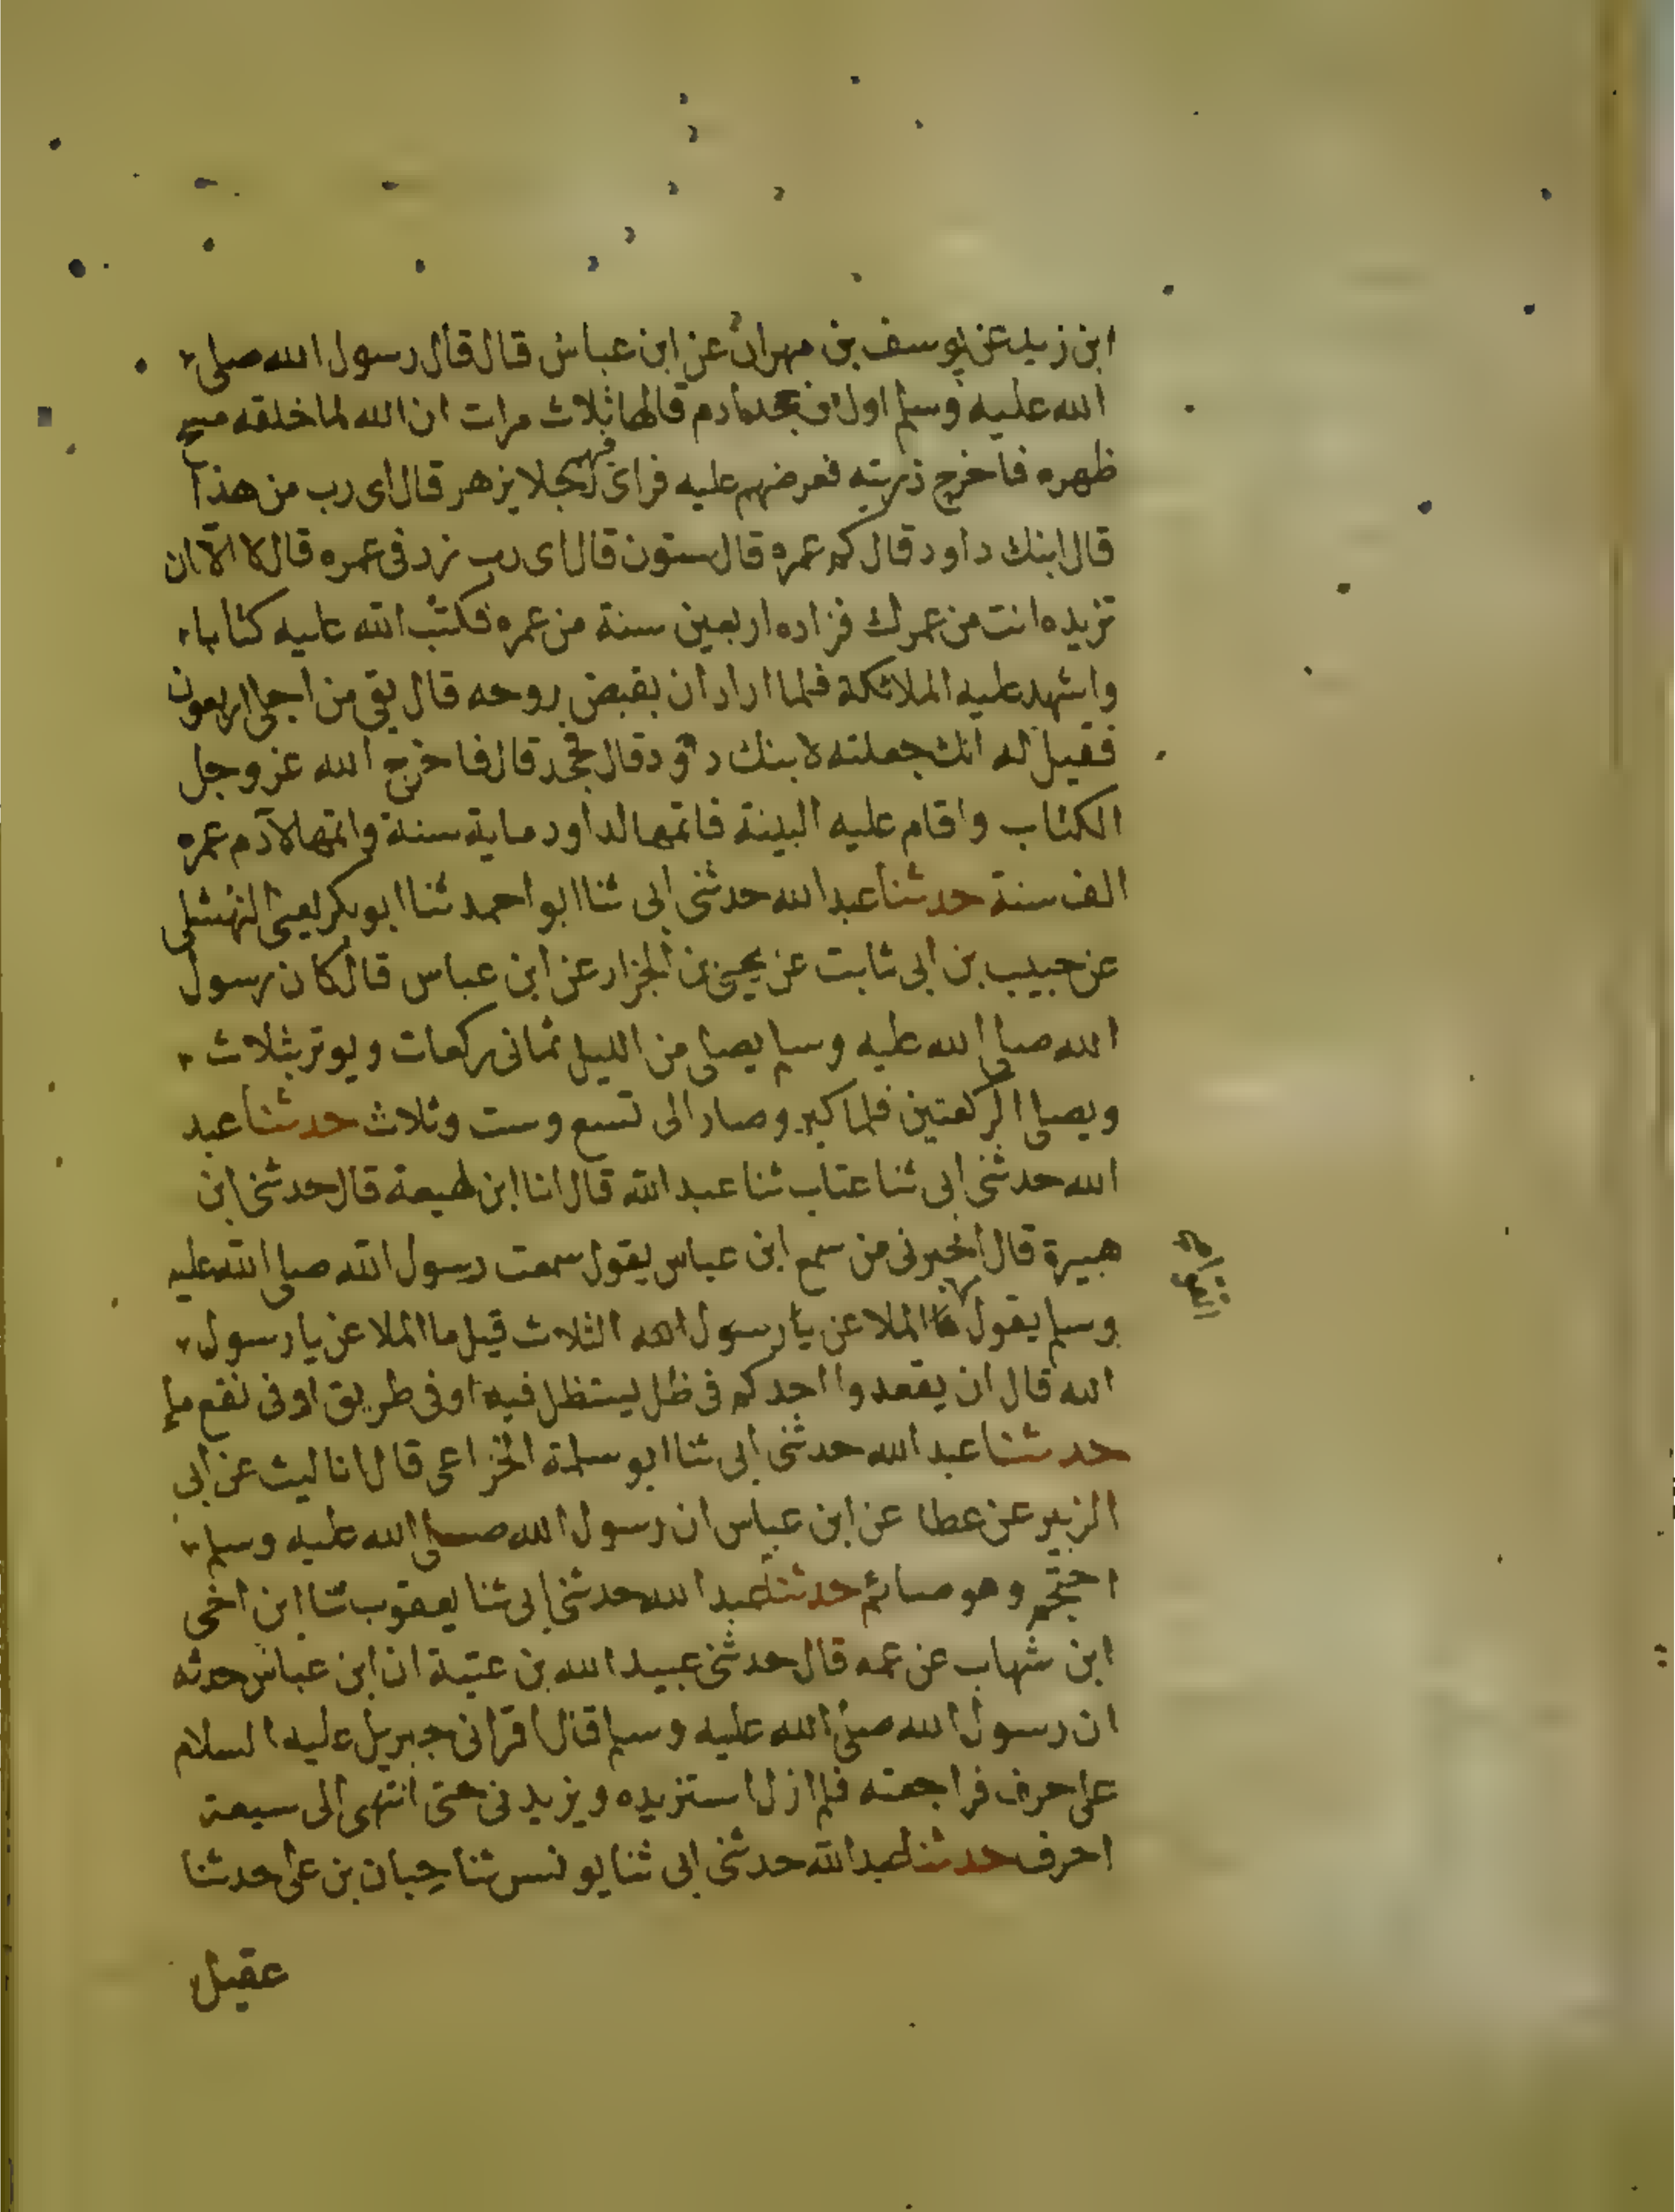 ابن زيد عن يوسف بن مهران عن ابن عباس قال قال رسول الله صلى
الله عليه وسلم اول من جحد ادم قالها ثلاث مرات ان الله لما خلقه مسح
ظهره فاخرج ذريته فعرضهم عليه فراى فيهم رجلا يزهر قال اى رب من هذا
قال ابنك داود قال كم عمره قال ستون قال اى رب زد فى عمره قال لا الا ان
تزيده انت من عمرك فزاده اربعين سنة من عمره فكتب الله عليه كتابا
واشهد عليه الملائكة فلما اراد ان يقبض روحه قال بقى من اجلى اربعون
فقيل له انك جعلته لابنك داود قال فجحد قال فاخرج الله عز وجل
الكتاب واقام عليه البينة فاتمها لداود ماية سنة واتمها لآدم عمره
الف سنة حدثنا عبد الله حدثنى ابى ثنا ابو احمد ثنا ابو بكر يعنى النهشلى
عن حبيب بن ابى ثابت عن يحيى بن الجزار عن ابن عباس قال كان رسول
الله صلى الله عليه وسلم يصلى من الليل ثمانى ركعات ويوتر بثلاث
ويصلى الركعتين فلما كبر وصار الى تسع وست وثلاث حدثنا عبد
الله حدثنى ابى ثنا عتاب ثنا عبد الله قال انا ابن لهيعة قال حدثنى ابن
هبيرة قال اخبرنى من سمع ابن عباس يقول سمعت رسول الله صلى الله عليه
وسلم يقول الملاعن يا رسول الله الثلاث قيل ما الملاعن يا رسول
الله قال ان يقعدوا احدكم فى ظل يستظل فيه او فى طريق او فى نقع ماء
حدثنا عبد الله حدثنى ابى ثنا ابو سلمة الخزاعى قال انا ليث عن ابى
الزبير عن عطا عن ابن عباس ان رسول الله صلى الله عليه وسلم
احتجم وهو صائم حدثنا عبد الله حدثنى ابى ثنا يعقوب ثنا ابن اخى
ابن شهاب عن عمه قال حدثنى عبيد الله بن عتبة ان ابن عباس حدثه
ان رسول الله صلى الله عليه وسلم قال اقرانى جبريل عليه السلام
على حرف فراجعته فلم ازل استزيده ويزيدنى حتى انتهى الى سبعة
احرف حدثنا عبد الله حدثنى ابى ثنا يونس ثنا حبان بن على حدثنا
عقيل